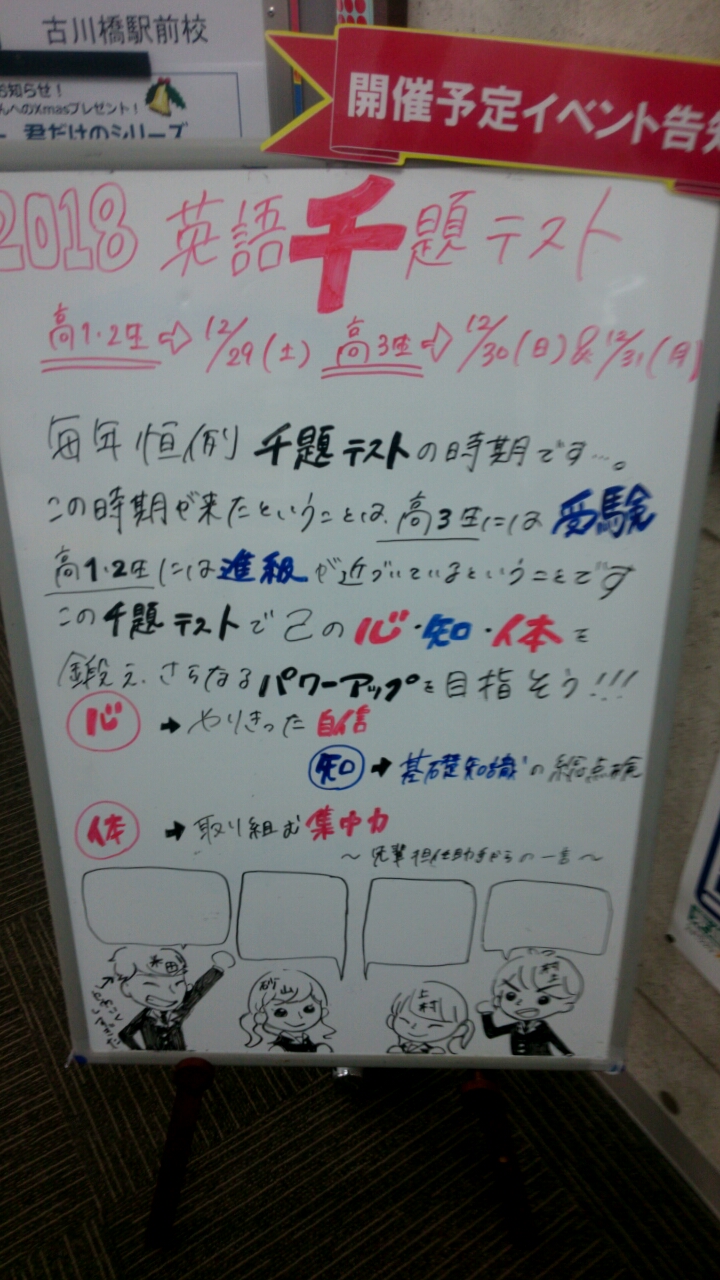 古川橋駅前校
お知らせ！
へのXmasプレゼント！
君だけのシリーズ
開催予定イベント告知
2018 英語千題テスト
高1・2生⇨12/29(土) 高3生⇨12/30(日)&12/31(月)
毎年恒例 千題テストの時期です…。
この時期が来たということは、高3生には受験
高1・2生には進級が近づいているということです
この千題テストで己の心・知・体を
鍛え、さらなるパワーアップを目指そう!!!
心→やりきった自信
知→基礎知識の総点検
体→取り組む集中力
～先輩担任助手からの一言～
砂山
上村
村上